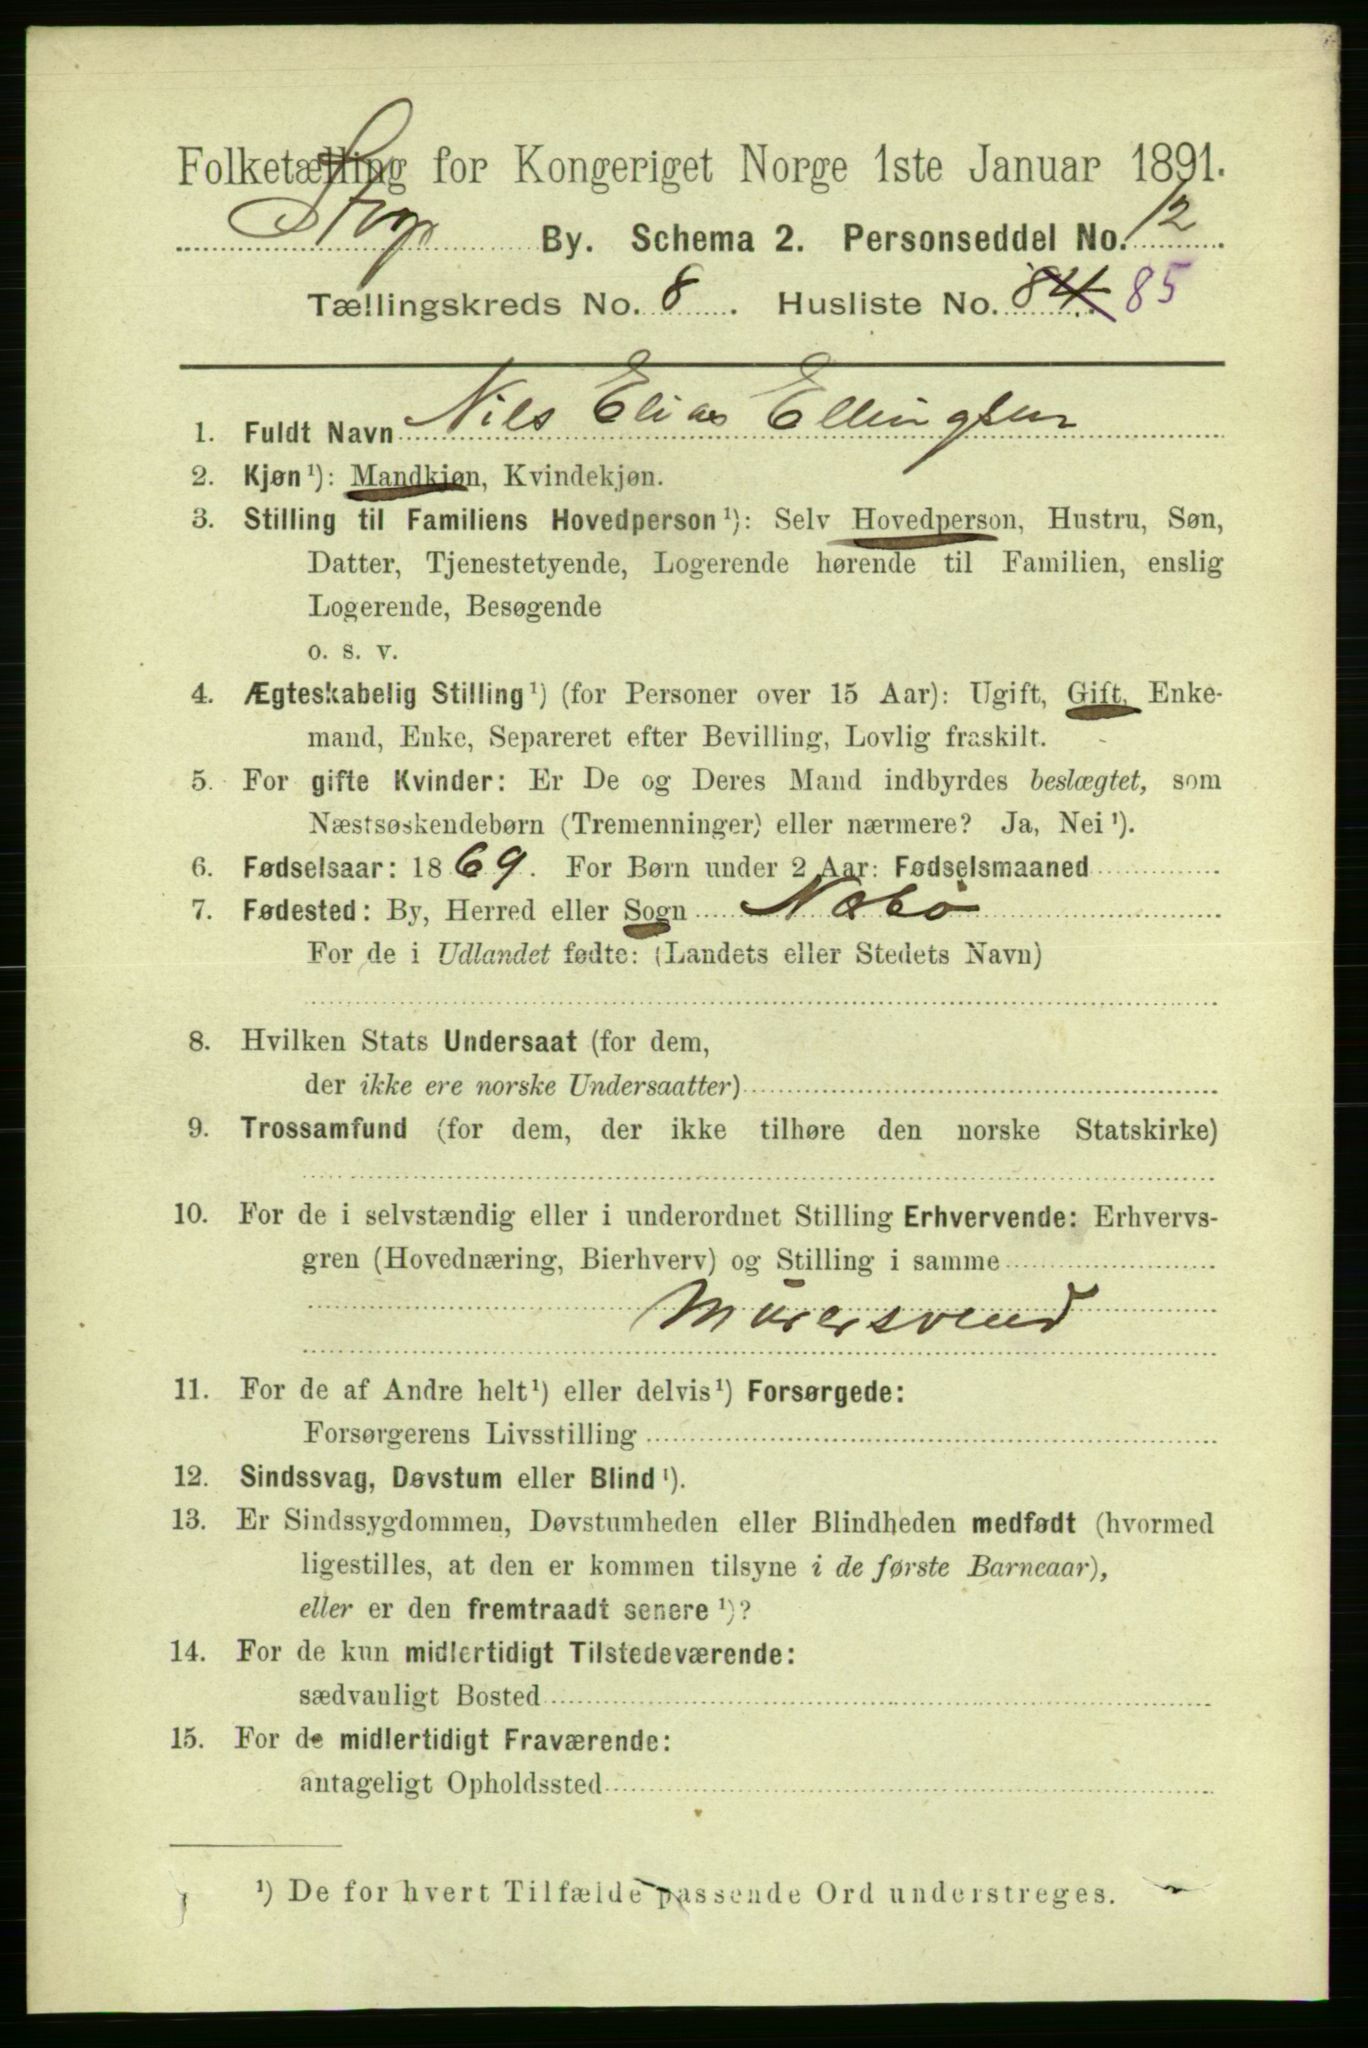 Folketælling for Kongeriget Norge 1ste Januar 1891.
By. Schema 2. Personseddel No. 12
Tællingskreds No. 8. Husliste No. 84 85
1. Fuldt Navn Nils Elias Ellingsen
2. Kjøn ¹): Mandkjøn, Kvindekjøn.
3. Stilling til Familiens Hovedperson ¹): Selv Hovedperson, Hustru, Søn,
Datter, Tjenestetyende, Logerende hørende til Familien, enslig
Logerende, Besøgende
o. s. v.
4. Ægteskabelig Stilling ¹) (for Personer over 15 Aar): Ugift, Gift, Enke-
mand, Enke, Separeret efter Bevilling, Lovlig fraskilt.
5. For gifte Kvinder: Er De og Deres Mand indbyrdes beslægtet, som
Næstsøskendebørn (Tremenninger) eller nærmere? Ja, Nei ¹).
6. Fødselsaar: 1869. For Børn under 2 Aar: Fødselsmaaned
7. Fødested: By, Herred eller Sogn Næbø
For de i Udlandet fødte: (Landets eller Stedets Navn)
8. Hvilken Stats Undersaat (for dem,
der ikke ere norske Undersaatter)
9. Trossamfund (for dem, der ikke tilhøre den norske Statskirke)
10. For de i selvstændig eller i underordnet Stilling Erhvervende: Erhvervs-
gren (Hovednæring, Bierhverv) og Stilling i samme
Murersvend
11. For de af Andre helt ¹) eller delvis ¹) Forsørgede:
Forsørgerens Livsstilling
12. Sindssvag, Døvstum eller Blind ¹).
13. Er Sindssygdommen, Døvstumheden eller Blindheden medfødt (hvormed
ligestilles, at den er kommen tilsyne i de første Barneaar),
eller er den fremtraadt senere ¹)?
14. For de kun midlertidigt Tilstedeværende:
sædvanligt Bosted
15. For de midlertidigt Fraværende:
antageligt Opholdssted
¹) De for hvert Tilfælde passende Ord understreges.